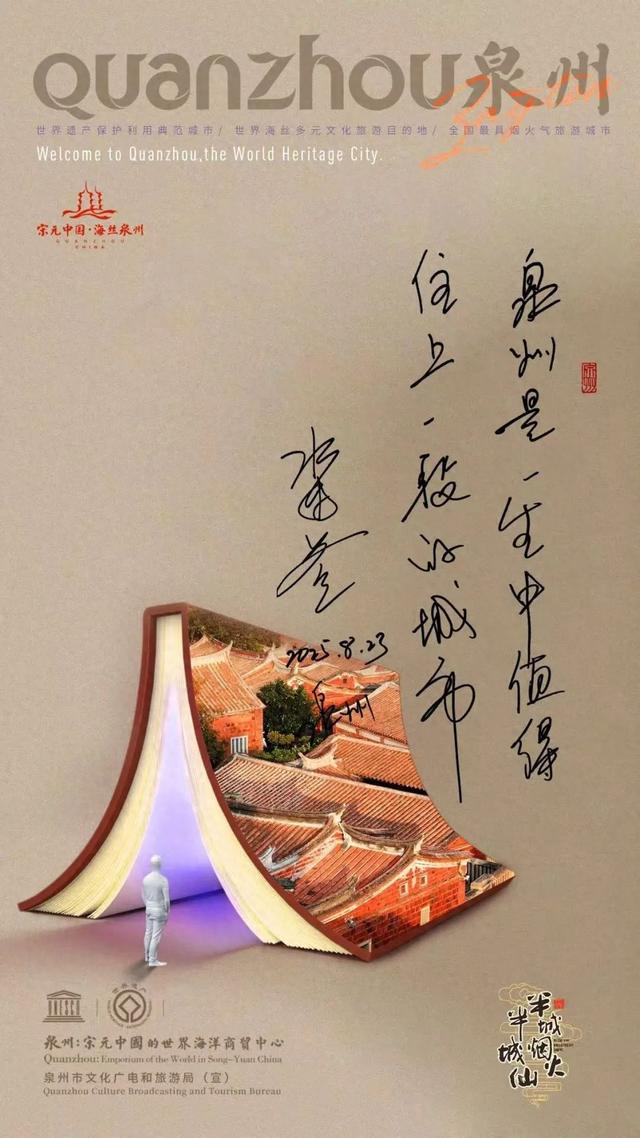 Quanzhou泉州
世界遗产保护利用典范城市/ 世界海丝多元文化旅游目的地/ 全国最具烟火气旅游城市
Welcome to Quanzhou,the World Heritage City.
宗元中国·海丝泉州
QUANZHOU
CHINA
泉州是一生中值得
住上一段的城市
2025.8.23
泉州
UNESCO
世界遗产
泉州：宗元中國的世界海洋商贸中心
Quanzhou: Emporium of the World in Song-Yuan China
泉州市文化广电和旅游局（宣）
Quanzhou Culture Broadcasting and Tourism Bureau
半城烟火
半城仙